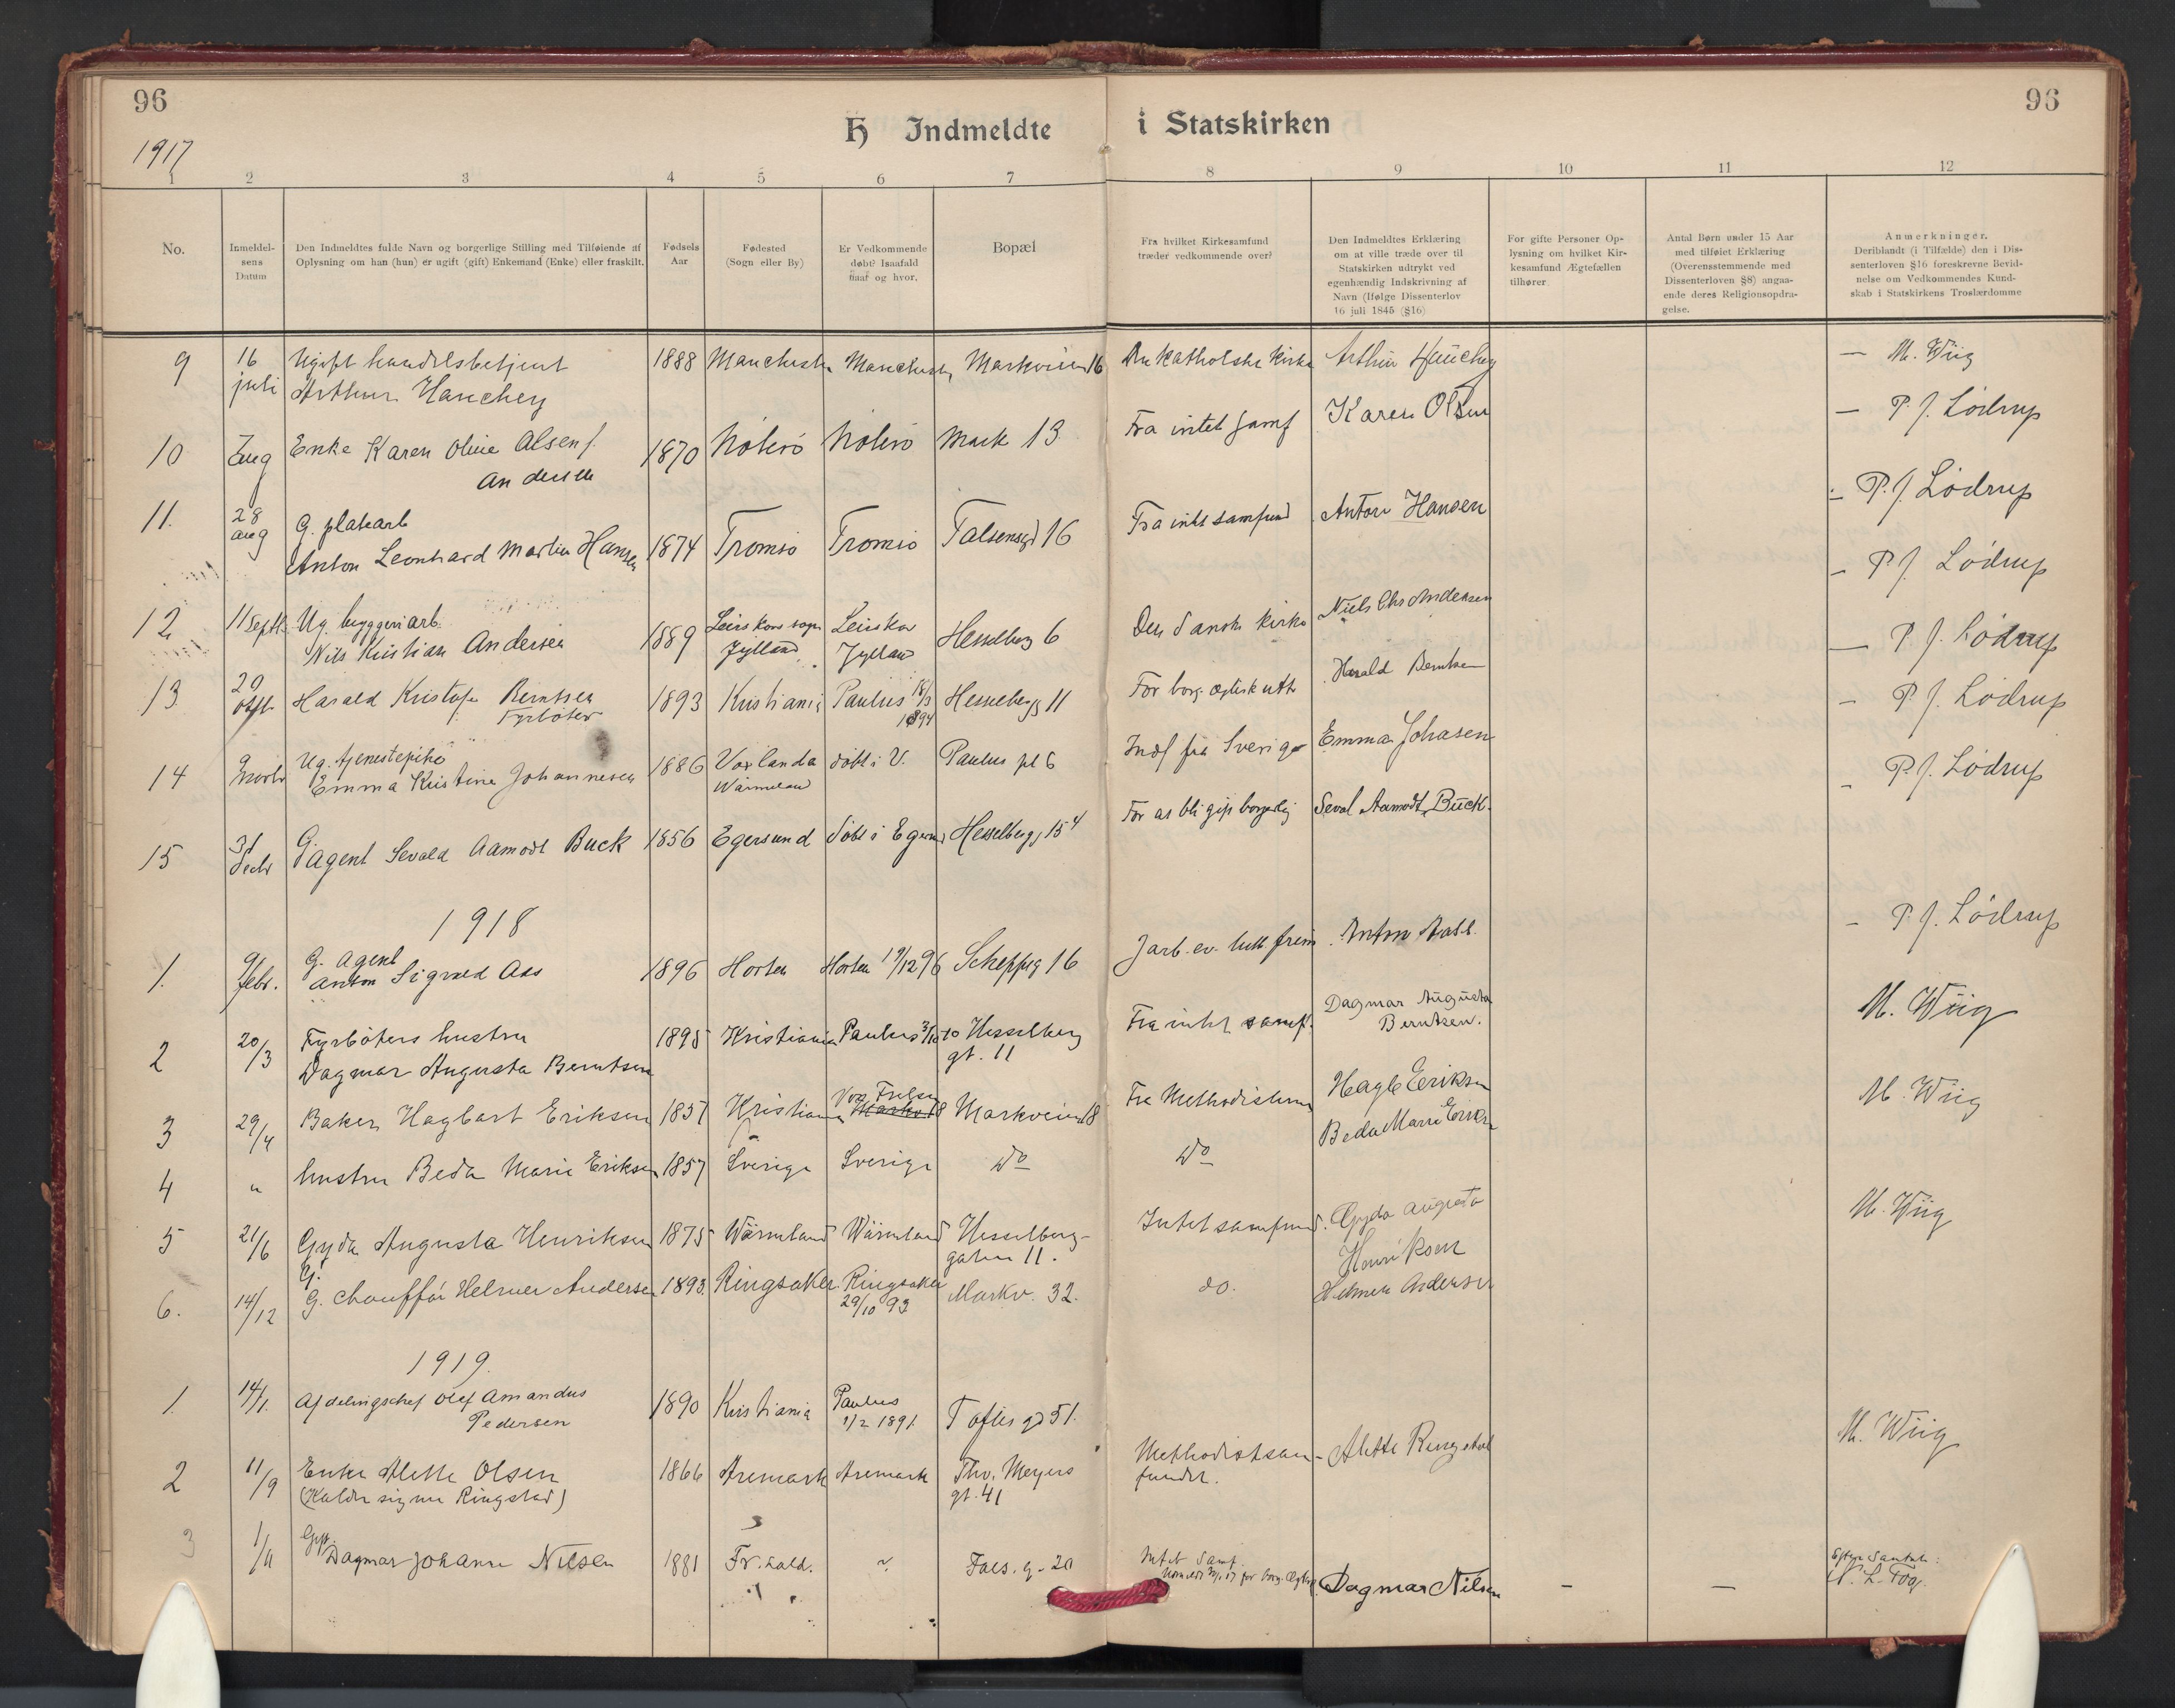 96
96
H Indmeldte i Statskirken
1917
1 2 3 4 5 6 7 8 9 10 11 12
No.
Inmeldel-
sens
Datum
Den Indmeldtes fulde Navn og borgerlige Stilling med Tilføiende af
Oplysning om han (hun) er ugift (gift) Enkemand (Enke) eller fraskilt.
Fødsels
Aar
Fødested
(Sogn eller By)
Er Vedkommende
døbt? Isaafald
naar og hvor.
Bopæl
Fra hvilket Kirkesamfund
træder vedkommende over?
Den Indmeldtes Erklæring
om at ville træde over til
Statskirken udtrykt ved
egenhændig Indskrivning af
Navn (Ifølge Dissenterlov
16 juli 1845 (§16)
For gifte Personer Op-
lysning om hvilket Kir-
kesamfund Ægtefællen
tilhører
Antal Børn under 15 Aar
med tilføiet Erklæring
(Overensstemmende med
Dissenterloven §8) angaa-
ende deres Religionsopdra-
gelse.
Anmerkninger.
Deriblandt (i Tilfælde) den i Dis-
senterloven §16 foreskrevne Bevid-
nelse om Vedkommendes Kund-
skab i Statskirkens Troslærdomme
9 16 juli Ugift handelsbetjent
Arthur Hanchey 1888 Manchester Manchester Markveien 16 Den Katholske Kirke Arthur Hanchey — M. Wiig
10 Aug Enke Karen Oline Olsen f.
Andersen 1870 Nøterø Nøterø Mark 13 Fra intet samf Karen Olsen — P. J. Lødrup
11. 28 aug G. platearb
Anton Leonhard Martin Hansen 1874 Tromsø Tromsø Falsensgd 16 Fra intet samfund Anton Hansen — P. J. Lødrup
12 11 Septb. Ug. byggeriarb.
Nils Kristian Andersen 1889 Leirskov sogn
Jylland Leirskov
Jylland Hesselberg 6 Den danske kirke Niels Chr Andersen — P J. Lødrup
13 29 Harald Kristofer Berntsen
Fyrbøter 1893 Kristiania Paulus 18/3
1894 Hesselbergg 11 For borg. Harald Berntsen — P. J. Lødrup
14 9 Novbr Ug. tjenestepike
Emma Kristine Johannesen 1886 Voxlanda
Wärmeland døbt i V. Paulus pl 6 Indf fra Sverige Emma Johasen — P. J. Lødrup
15 31 Decbr G. agent Sevald Aamodt Buck 1856 Egersund døbt i Egersund Hesselbergg 15 4 For at bli gift borgerlig Seval Aamodt Buck. — P. J. Lødrup
1918
1. 9 febr. G. Agent
Anton Sigvald Aas 1896 Horten Horten 19/12 96 Scheppeg 16 J arb. ev. luth. frim. Anton Aas — P. J. Lødrup
2 20/3 Fyrbøters hustru
Dagmar Augusta Berntsen 1895 Kristiania Paulus Hesselberg
gt. 11 Fra intet samf. Dagmar Augusta
Berntsen. M. Wiig
3 29/4 Baker Hagbart Eriksen 1857 Kristiania Vor Frelser Markveien 18 Fra Methodisterne Hagb Eriksen M. Wiig
4 " hustru Beda Marie Eriksen 1857 Sverige Sverige do do Beda Marie Eriksen
5 21/6 Gyda Augusta Henriksen 1875 Wärmland Wärmland Hesselberg-
gaten 11. Intet samfund. Gyda Augusta
Henriksen M. Wiig
6. 14/12 G. chauffør Helmer Andersen 1893. Ringsaker. Ringsaker
29/10 93 Markv. 32. do. Helmer Andersen
1919.
1. 14/1. Afdelingschef Olef Amandus
Pedersen 1890 Kristiania Paulus
1/2 1891. Toftes gd 51.
2 11/9 Enke Alette Olsen
(Kalder sig nu Ringstad) 1866 Aremark Aremark Thv. Meyers
gt. 41 Methodistsam-
fundet. Alette Ringstad M. Wiig
3 1/11 Gift Dagmar Johanne Nilsen 1881 Fr. hald. Fals. g. 20 Intet Samf. Dagmar Nilsen — — Efter Samtale: